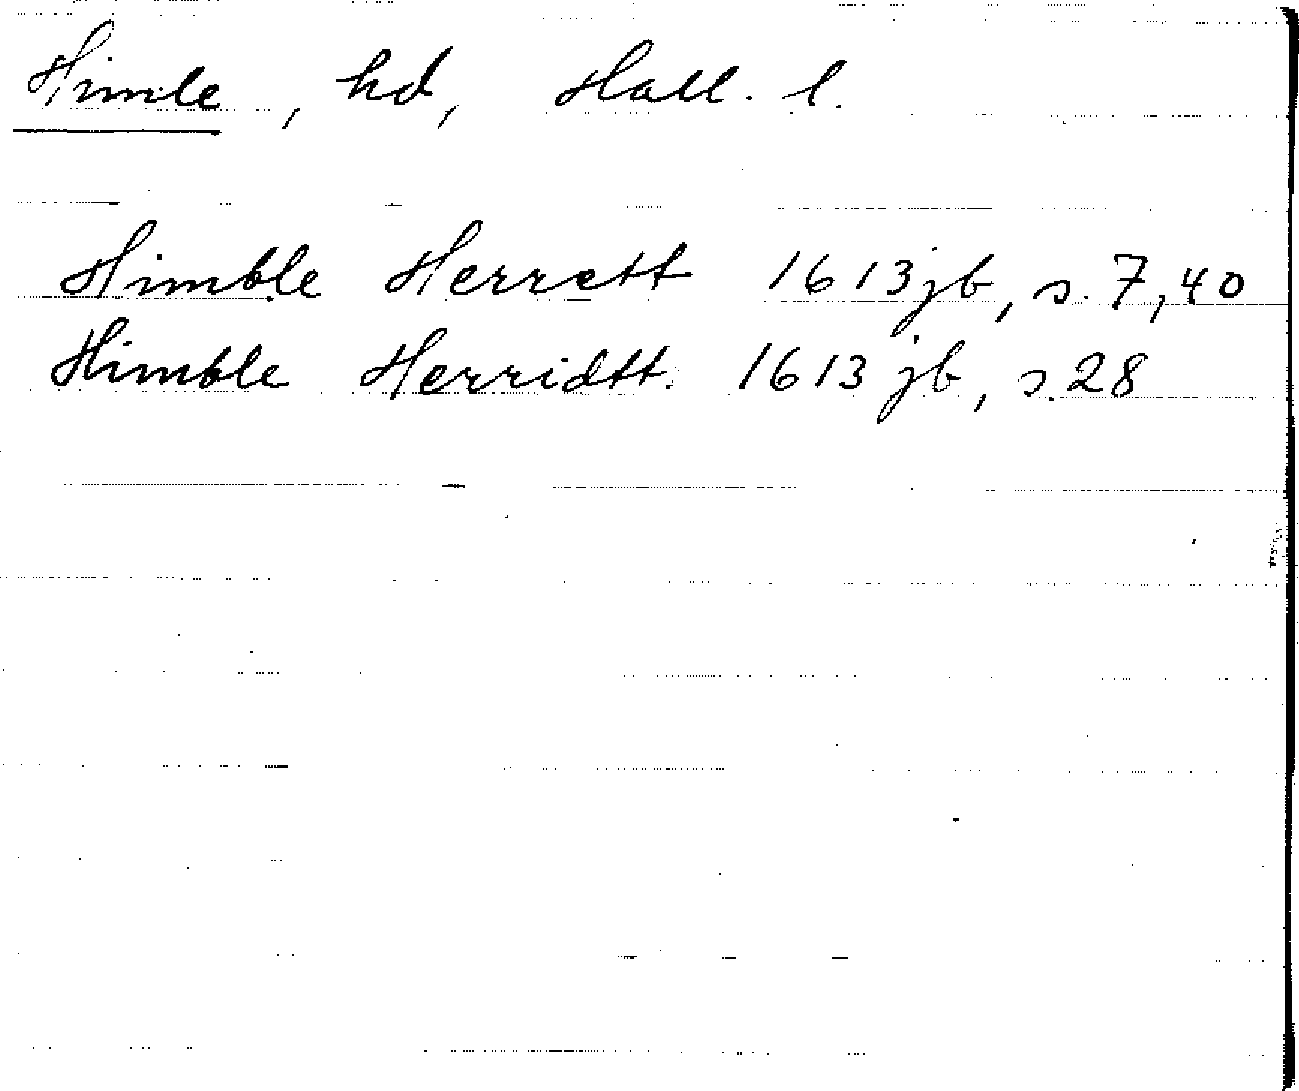 Himle, hd, Hall. l.
Himble Herrett 1613 jb, s. 7, 40
Himble Herridtt. 1613 jb, s. 28